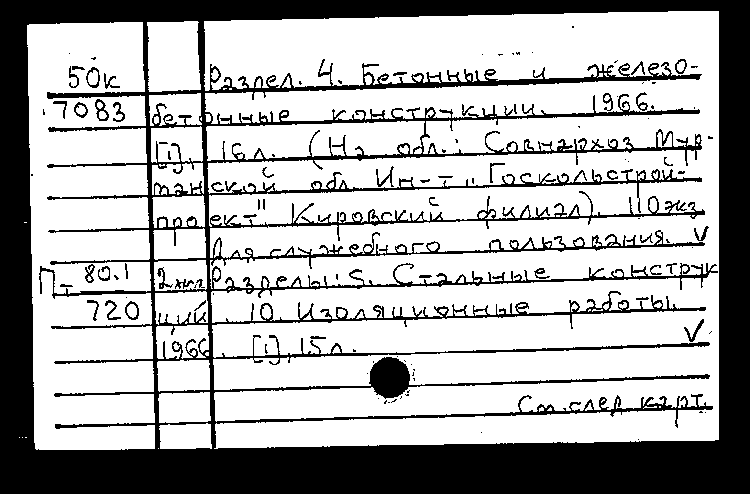 50к Раздел. 4. Бетонные и железо-
7083 бетонные конструкции. 1966.
[1], 16л. (На обл.: Совнархоз Мур-
манской обл. Ин-т „Госкольстрой-
проект" Кировский филиал). 110экз
Для служебного пользования. V
Пт 80.1 2экз Разделы: 5. Стальные конструк
720 ций. 10. Изоляционные работы.
1966. [1], 15л. V
См. след карт.